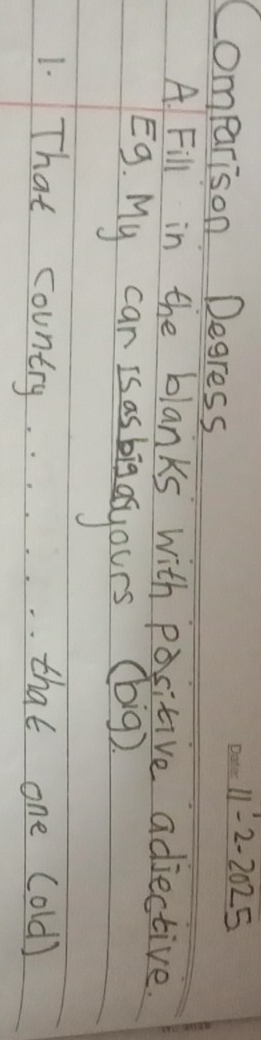 Date: 11-2-2025
Comparison Degress
A. Fill in the blanks with positive adjective.
Eg. My can is as big as yours (big).
1. That country........that one (old)